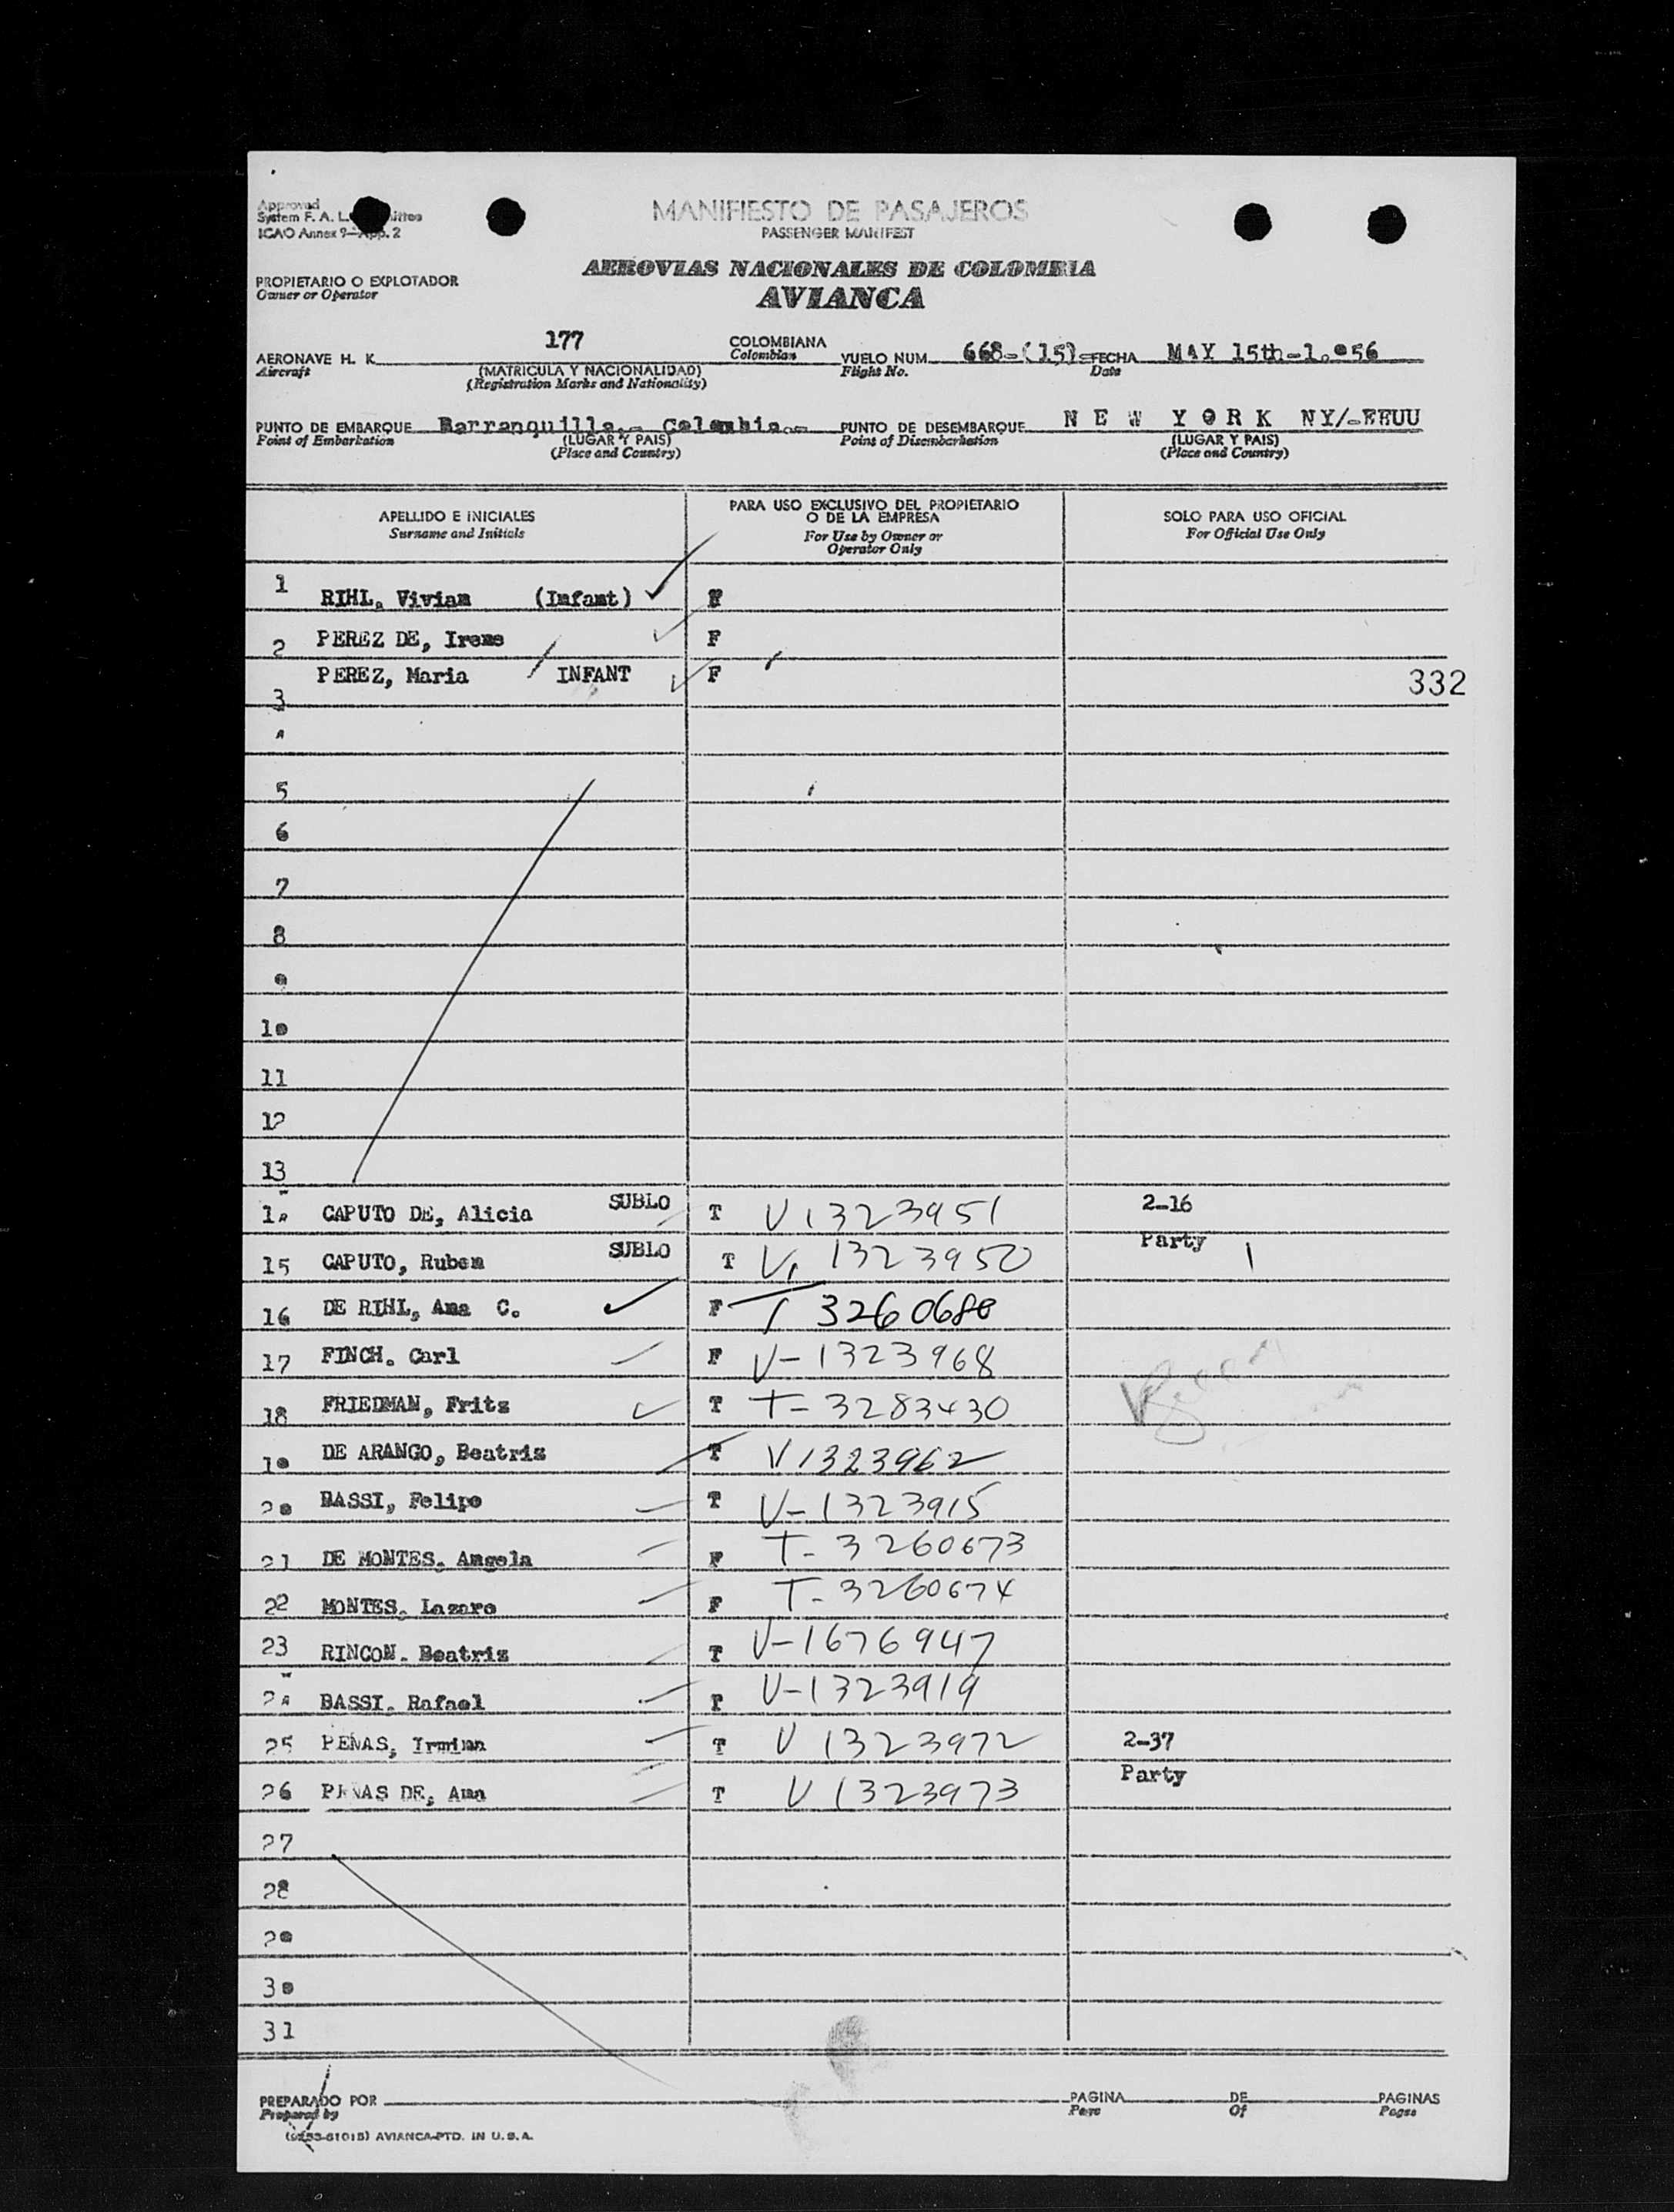 Approved
System F. A. L.
ICAO Annex 9—App. 2
MANIFIESTO DE PASAJEROS
PASSENGER MANIFEST
AEROVIAS NACIONALES DE COLOMBIA
AVIANCA
PROPIETARIO O EXPLOTADOR
Owner or Operator
AERONAVE H. K. 177 COLOMBIANA VUELO NUM. 668-(15)- FECHA MAY 15th-1.956
Aircraft (MATRICULA Y NACIONALIDAD) Colombian Flight No. Date
(Registration Marks and Nationality)
PUNTO DE EMBARQUE Barranquilla.- Colombia.- PUNTO DE DESEMBARQUE N E W Y O R K NY/-EEUU
Point of Embarkation (LUGAR Y PAIS) Point of Disembarkation (LUGAR Y PAIS)
(Place and Country) (Place and Country)
APELLIDO E INICIALES PARA USO EXCLUSIVO DEL PROPIETARIO O DE LA EMPRESA SOLO PARA USO OFICIAL
Surname and Initials For Use by Owner or Operator Only For Official Use Only
1 RIHL, Vivian (Infant) F
2 PEREZ DE, Irene F
3 PEREZ, Maria INFANT F 332
4
5
6
7
8
9
10
11
12
13
14 CAPUTO DE, Alicia SUBLO T V1323951 2-16
15 CAPUTO, Ruben SUBLO T V, 1323950 Party
16 DE RIHL, Ana C. F T 3260680
17 FINCH. Carl F V-1323968
18 FRIEDMAN, Fritz T T-3283430
19 DE ARANGO, Beatriz T V1323962
20 BASSI, Felipe T V-1323915
21 DE MONTES. Angela F T-3260673
22 MONTES. Lazaro F T-3260674
23 RINCON. Beatriz T V-1676947
24 BASSI. Rafael F V-1323919
25 PENAS, T V 1323972 2-37
26 PENAS DE, Ana T V 1323973 Party
27
28
29
30
31
PREPARADO POR PAGINA DE PAGINAS
Prepared by Page Of Pages
AVIANCA-PTD. IN U.S.A.